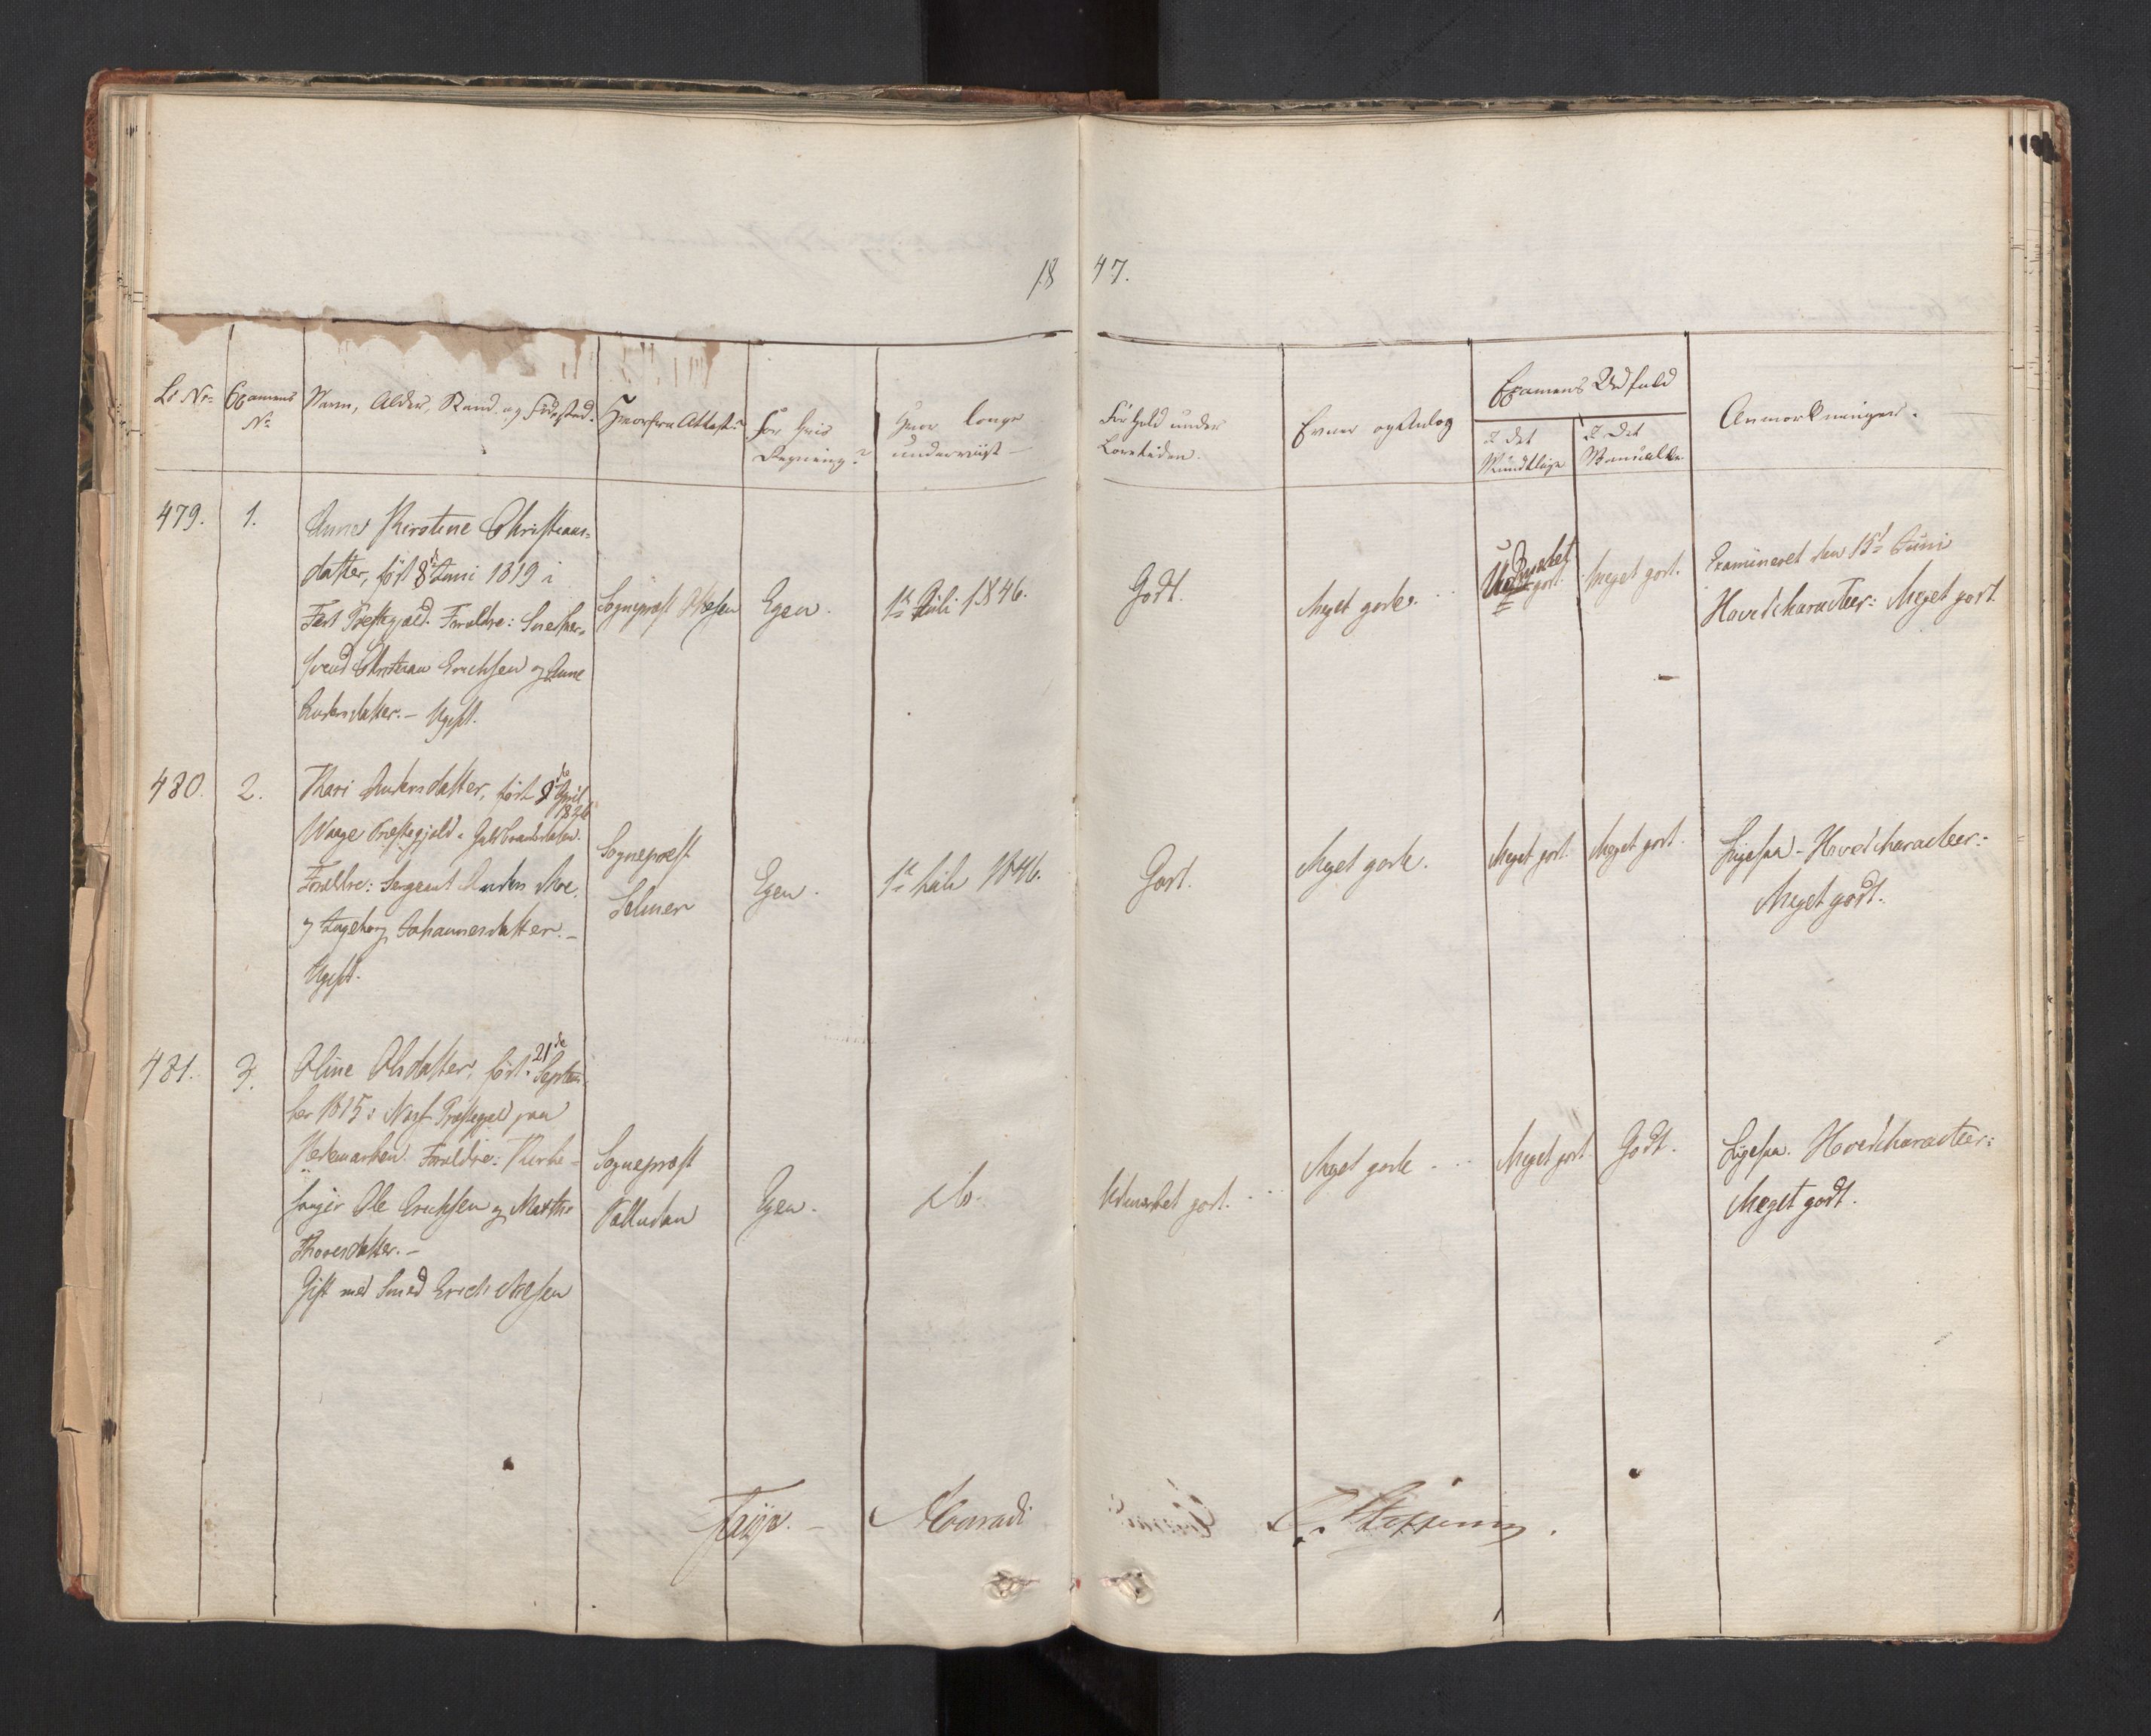 1847.
Lb No
Examens No
Navn, Alder, Stand og Fødested.
Hvorfra Attest?
For hvis Regning?
Hvor længe underviist
Forhold under Læretiden.
Evner og Anlæg
Examens Udfald
I det Mundtlige
I det Manuelle
Anmærkninger.
479.
1.
Anne Kirstine Christians-
datter, født 8de Juni 1819 i
Præstegjæld. Forældre:
Svend Christian Erichsen og Anne
Andersdatter. – Ugift.
Sognepræst
Egen.
1ste Juli 1846.
Godt.
Meget gode.
Udmærket godt.
Meget godt.
Examineret den 15de Juni
Hovedcharacteer: Meget godt.
480.
2.
Kari Andersdatter, født 8de April
Waage Præstegjeld i Guldbrandsdalen.
Forældre: Sergeant Anders Moe
og Ingeborg Johannesdatter. –
Ugift.
Sognepræst
Selmer
Egen.
1ste Juli 1846.
Godt.
Meget gode.
Meget godt.
Meget godt.
Ligesaa – Hovedcharacteer:
Meget godt.
481.
3.
Oline Olsdatter, født 21de Septem-
ber 1815 i Næs Præstegjeld paa
Hedemarken. Forældre: Kirke-
sanger Ole Erichsen og Marthe
Thoresdatter. –
Gift med Smed Erich Olsen
Sognepræst
Palludan
Egen.
do.
Udmærket godt.
Meget gode
Meget godt
Godt.
Ligesaa. Hovedcharacteer:
Meget godt.
Faye. –
Conradi
Steffens.